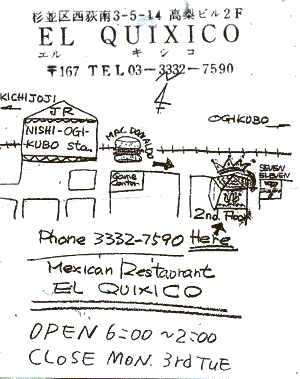 杉並区西荻南3-5-14 高梨ビル2F
EL QUIXICO
エル キシコ
〒167 TEL03-3332-7590
4
KICHIJOJI
JR
NISHI-OGI-
KUBO sta.
MAC DONALD
OGIKUBO
Game
Center
SEVEN
ELEVEN
2nd Floor
Phone 3332-7590 Here
Mexican Restaurant
EL QUIXICO
OPEN 6:00~2:00
CLOSE MON. 3rd TUE